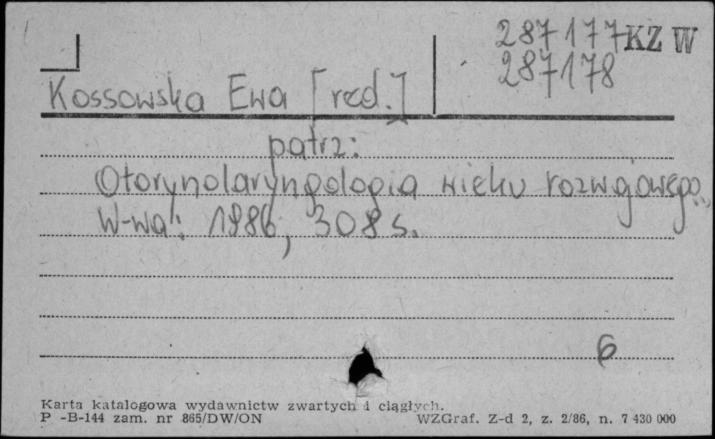 287177 KZ W
287178
Kossowska Ewa [red.]
patrz:
Otorynolaryngologia wieku rozwojowego.,
W-wa: 1986, 308 s.
6
Karta katalogowa wydawnictw zwartych i ciągłych.
P -B-144 zam. nr 865/DW/ON WZGraf. Z-d 2, z. 2/86, n. 7 430 000